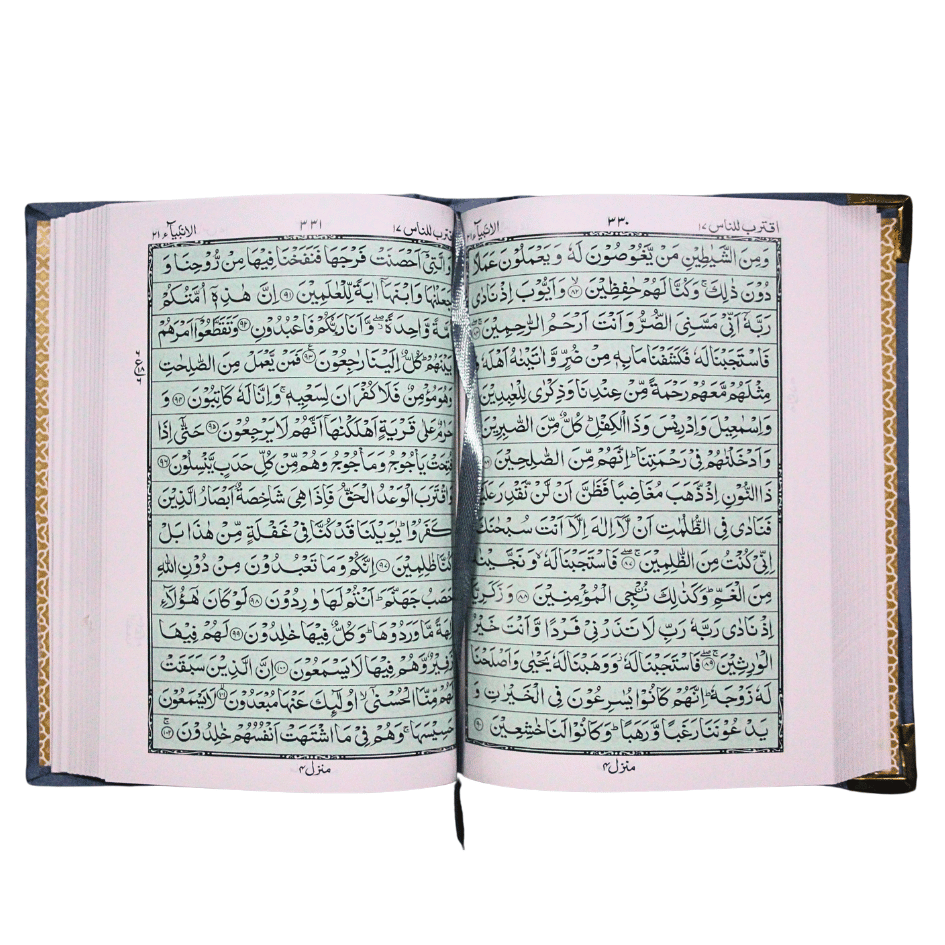 اقترب للناس ۱۷
۳۳۰
الانبیآء ۲۱
وَمِنَ الشَّيٰطِيْنِ مَنْ يَّغُوْصُوْنَ لَهٗ وَيَعْمَلُوْنَ عَمَلًا
دُوْنَ ذٰلِكَ ۚ وَكُنَّا لَهُمْ حٰفِظِيْنَ ۙ﴿۸۲﴾ وَاَيُّوْبَ اِذْ نَادٰى
رَبَّهٗۤ اَنِّىْ مَسَّنِىَ الضُّرُّ وَاَنْتَ اَرْحَمُ الرّٰحِمِيْنَ
فَاسْتَجَبْنَا لَهٗ فَكَشَفْنَا مَا بِهٖ مِنْ ضُرٍّ وَّاٰتَيْنٰهُ اَهْلَهٗ
مِثْلَهُمْ مَّعَهُمْ رَحْمَةً مِّنْ عِنْدِنَا وَذِكْرٰى لِلْعٰبِدِيْنَ
وَاِسْمٰعِيْلَ وَاِدْرِيْسَ وَذَا الْكِفْلِ ؕ كُلٌّ مِّنَ الصّٰبِرِيْنَ
وَاَدْخَلْنٰهُمْ فِىْ رَحْمَتِنَا ؕ اِنَّهُمْ مِّنَ الصّٰلِحِيْنَ
ذَا النُّوْنِ اِذْ ذَّهَبَ مُغَاضِبًا فَظَنَّ اَنْ لَّنْ نَّقْدِرَ عَلَيْهِ
فَنَادٰى فِى الظُّلُمٰتِ اَنْ لَّاۤ اِلٰهَ اِلَّاۤ اَنْتَ سُبْحٰنَكَ
اِنِّىْ كُنْتُ مِنَ الظّٰلِمِيْنَ ۚۖ﴿۸۷﴾ فَاسْتَجَبْنَا لَهٗ ۙ وَنَجَّيْنٰهُ
مِنَ الْغَمِّ ؕ وَكَذٰلِكَ نُـنْجِى الْمُؤْمِنِيْنَ ﴿۸۸﴾ وَزَكَرِيَّاۤ
اِذْ نَادٰى رَبَّهٗ رَبِّ لَا تَذَرْنِىْ فَرْدًا وَّاَنْتَ خَيْرُ
الْوٰرِثِيْنَ ۚۖ﴿۸۹﴾ فَاسْتَجَبْنَا لَهٗ وَوَهَبْنَا لَهٗ يَحْيٰى وَاَصْلَحْنَا
لَهٗ زَوْجَهٗ ؕ اِنَّهُمْ كَانُوْا يُسٰرِعُوْنَ فِى الْخَيْرٰتِ وَ
يَدْعُوْنَنَا رَغَبًا وَّرَهَبًا ؕ وَكَانُوْا لَنَا خٰشِعِيْنَ ﴿۹۰﴾
منزل ۴
اقترب للناس ۱۷
۳۳۱
الانبیآء ۲۱
وَالَّتِىْۤ اَحْصَنَتْ فَرْجَهَا فَنَفَخْنَا فِيْهَا مِنْ رُّوْحِنَا وَ
جَعَلْنٰهَا وَابْنَهَاۤ اٰيَةً لِّلْعٰلَمِيْنَ ﴿۹۱﴾ اِنَّ هٰذِهٖۤ اُمَّتُكُمْ
اُمَّةً وَّاحِدَةً ۖ وَّاَنَا رَبُّكُمْ فَاعْبُدُوْنِ ﴿۹۲﴾ وَتَقَطَّعُوْۤا اَمْرَهُمْ
بَيْنَهُمْ ؕ كُلٌّ اِلَيْنَا رٰجِعُوْنَ ﴿۹۳﴾ فَمَنْ يَّعْمَلْ مِنَ الصّٰلِحٰتِ
وَهُوَ مُؤْمِنٌ فَلَا كُفْرَانَ لِسَعْيِهٖ ۚ وَاِنَّا لَهٗ كَاتِبُوْنَ ﴿۹۴﴾ وَ
حَرٰمٌ عَلٰى قَرْيَةٍ اَهْلَكْنٰهَاۤ اَنَّهُمْ لَا يَرْجِعُوْنَ ﴿۹۵﴾ حَتّٰۤى اِذَا
فُتِحَتْ يَاْجُوْجُ وَمَاْجُوْجُ وَهُمْ مِّنْ كُلِّ حَدَبٍ يَّنْسِلُوْنَ ﴿۹۶﴾
وَاقْتَرَبَ الْوَعْدُ الْحَقُّ فَاِذَا هِىَ شَاخِصَةٌ اَبْصَارُ الَّذِيْنَ
كَفَرُوْا ؕ يٰوَيْلَنَا قَدْ كُنَّا فِىْ غَفْلَةٍ مِّنْ هٰذَا بَلْ
كُنَّا ظٰلِمِيْنَ ﴿۹۷﴾ اِنَّكُمْ وَمَا تَعْبُدُوْنَ مِنْ دُوْنِ اللّٰهِ
حَصَبُ جَهَنَّمَ ؕ اَنْتُمْ لَهَا وٰرِدُوْنَ ﴿۹۸﴾ لَوْ كَانَ هٰۤؤُلَاۤءِ
اٰلِهَةً مَّا وَرَدُوْهَا ؕ وَكُلٌّ فِيْهَا خٰلِدُوْنَ ﴿۹۹﴾ لَهُمْ فِيْهَا
زَفِيْرٌ وَّهُمْ فِيْهَا لَا يَسْمَعُوْنَ ﴿۱۰۰﴾ اِنَّ الَّذِيْنَ سَبَقَتْ
لَهُمْ مِّنَّا الْحُسْنٰىۤ ۙ اُولٰٓئِكَ عَنْهَا مُبْعَدُوْنَ ۙ﴿۱۰۱﴾ لَا يَسْمَعُوْنَ
حَسِيْسَهَا ۚ وَهُمْ فِىْ مَا اشْتَهَتْ اَنْفُسُهُمْ خٰلِدُوْنَ ۚ﴿۱۰۲﴾
منزل ۴